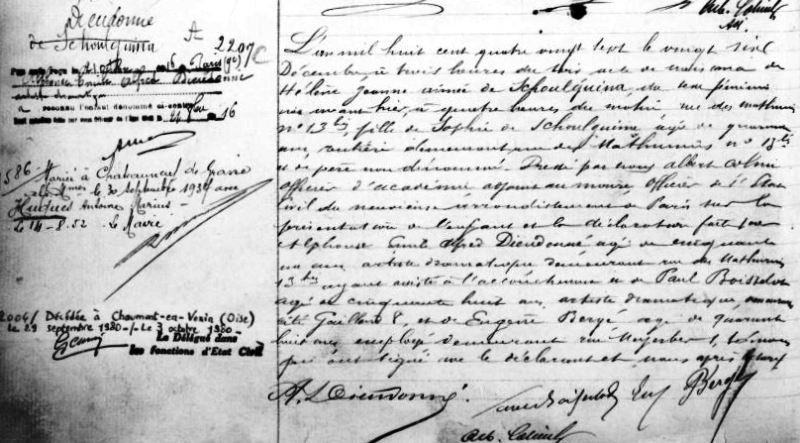 Dieudonné
de Schoulguina
A
2207
Paris (9e)
Alfred Dieudonné
a reconnu l'enfant dénommé ci-contre
16
1586
Mariée à Chateauneuf de Grasse
le 30 septembre 19
Hugues Antoine Marius
Le 14-8.52 - Le Maire
2004/ Décédée à Chaumont-en-Vexin (Oise)
le 29 septembre 1980 -/- Le 3 octobre 1980 -
Le Délégué dans
les fonctions d'Etat Civil
L'an mil huit cent quatre vingt sept le vingt six
Décembre à trois heures du soir acte de naissance de
Hélène Jeanne Aimée de Schoulguina, du sexe féminin
née avant hier, à quatre heures du matin rue des Mathurins
n° 13 bis, fille de Sophie de Schoulguina âgée de quarante
ans, rentière demeurant rue des Mathurins n° 13 bis
et de père non dénommé. Dressé par nous Albert
officier d'académie adjoint au maire, officier de l'Etat
Civil du neuvième arrondissement de Paris sur la
présentation de l'enfant et la déclaration faite par
Alphonse Emile Alfred Dieudonné âgé de cinquante
un ans, artiste dramatique demeurant rue des Mathurins
13 bis ayant assisté à l'accouchement en présence de Paul Boisselot
âgé de cinquante huit ans, artiste dramatique,
cité Gaillard 8, et de Eugène Bergé âgé de quarante
huit ans employé demeurant rue 1, témoins
qui ont signé avec le déclarant et nous après lecture
A. Dieudonné
Bergé